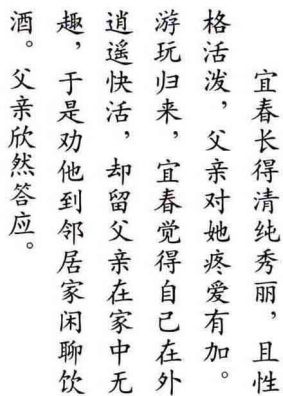 宜春长得清纯秀丽，且性
格活泼，父亲对她疼爱有加。
游玩归来，宜春觉得自己在外
逍遥快活，却留父亲在家中无
趣，于是劝他到邻居家闲聊饮
酒。父亲欣然答应。